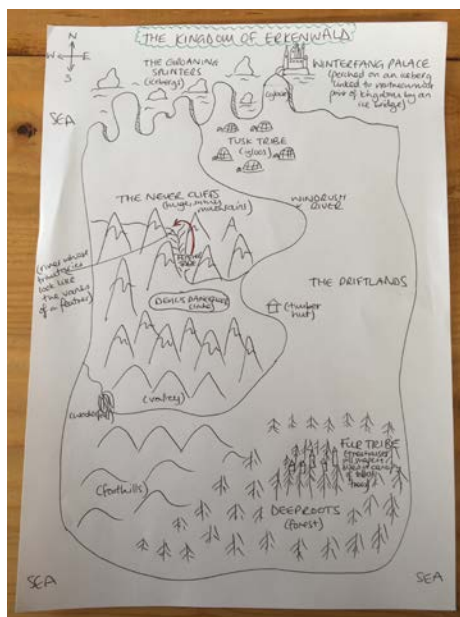 THE KINGDOM OF ERKENWALD
N
W
E
S
THE GROANING
SPLINTERS
(icebergs)
WINTERFANG PALACE
(perched on an iceberg
linked to northernmost
part of kingdom by an
ice bridge)
SEA
TUSK TRIBE
(igloos)
THE NEVER CLIFFS
(huge,
mountains)
WINDRUSH
RIVER
(river whose
tributaries
look like
the vanes
of a feather)
THE DRIFTLANDS
DEVIL'S DANCEFLOOR
(lake)
(timber
hut)
(valley)
FUR TRIBE
(treehouses
(foothills)
DEEPROOTS
(forest)
SEA
SEA